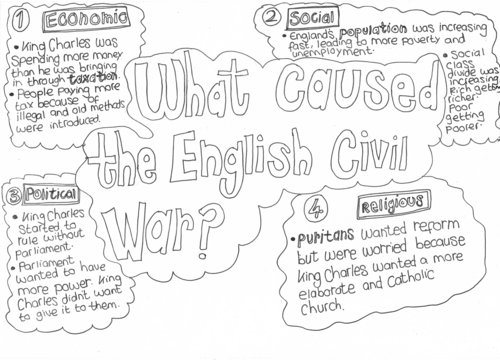 1 Economic
• King Charles was
spending more money
than he was bringing
in through taxation.
• People paying more
tax because of
illegal and old methods
were introduced.
2 Social
• England's population was increasing
fast, leading to more poverty and
unemployment.
• Social
class
divide was
increasing
Rich getting
richer.
Poor
getting
poorer.
What Caused
the English Civil
War?
3 Political
• King Charles
Started to
rule without
Parliament.
• Parliament
wanted to have
more power. King
Charles didnt want
to give it to them.
4 Religious
• Puritans wanted reform
but were worried because
King Charles wanted a more
elaborate and Catholic
church.